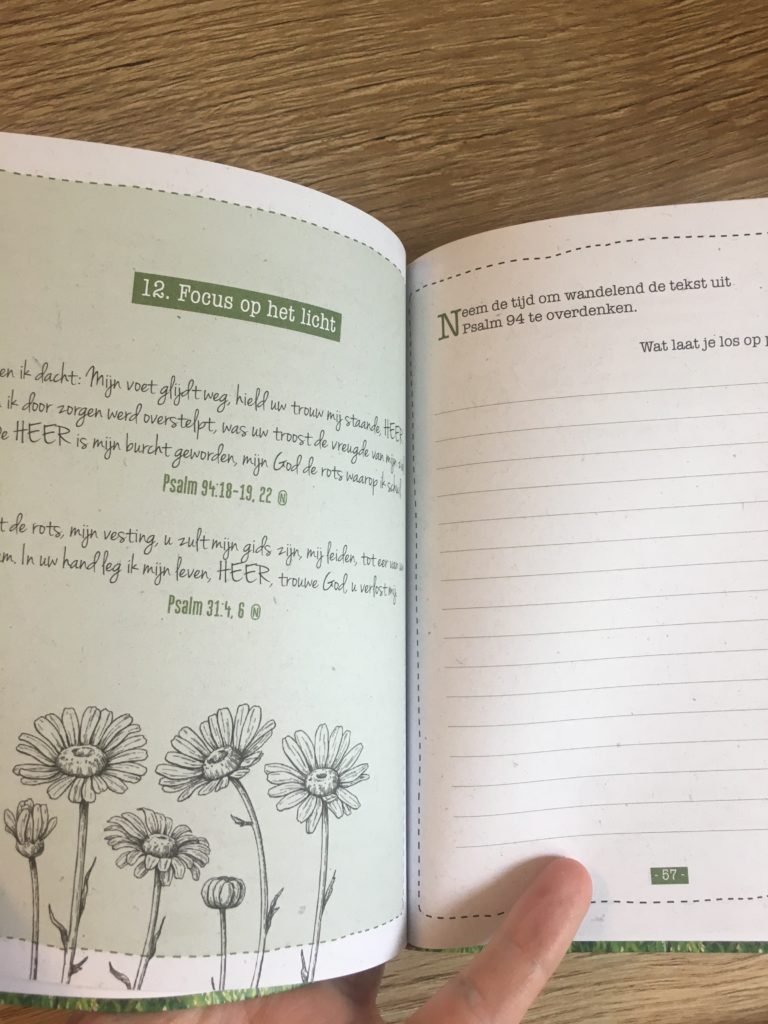 12. Focus op het licht
en ik dacht: Mijn voet glijdt weg, hield uw trouw mij staande, HEER
ik door zorgen werd overstelpt, was uw troost de vreugde van mijn
De HEER is mijn burcht geworden, mijn God de rots waarop ik schuil
Psalm 94:18-19, 22 N
t de rots, mijn vesting, u zult mijn gids zijn, mij leiden, tot eer van uw
am. In uw hand leg ik mijn leven, HEER, trouwe God, u verlost mij
Psalm 31:4, 6 N
Neem de tijd om wandelend de tekst uit
Psalm 94 te overdenken.
Wat laat je los op
- 57 -